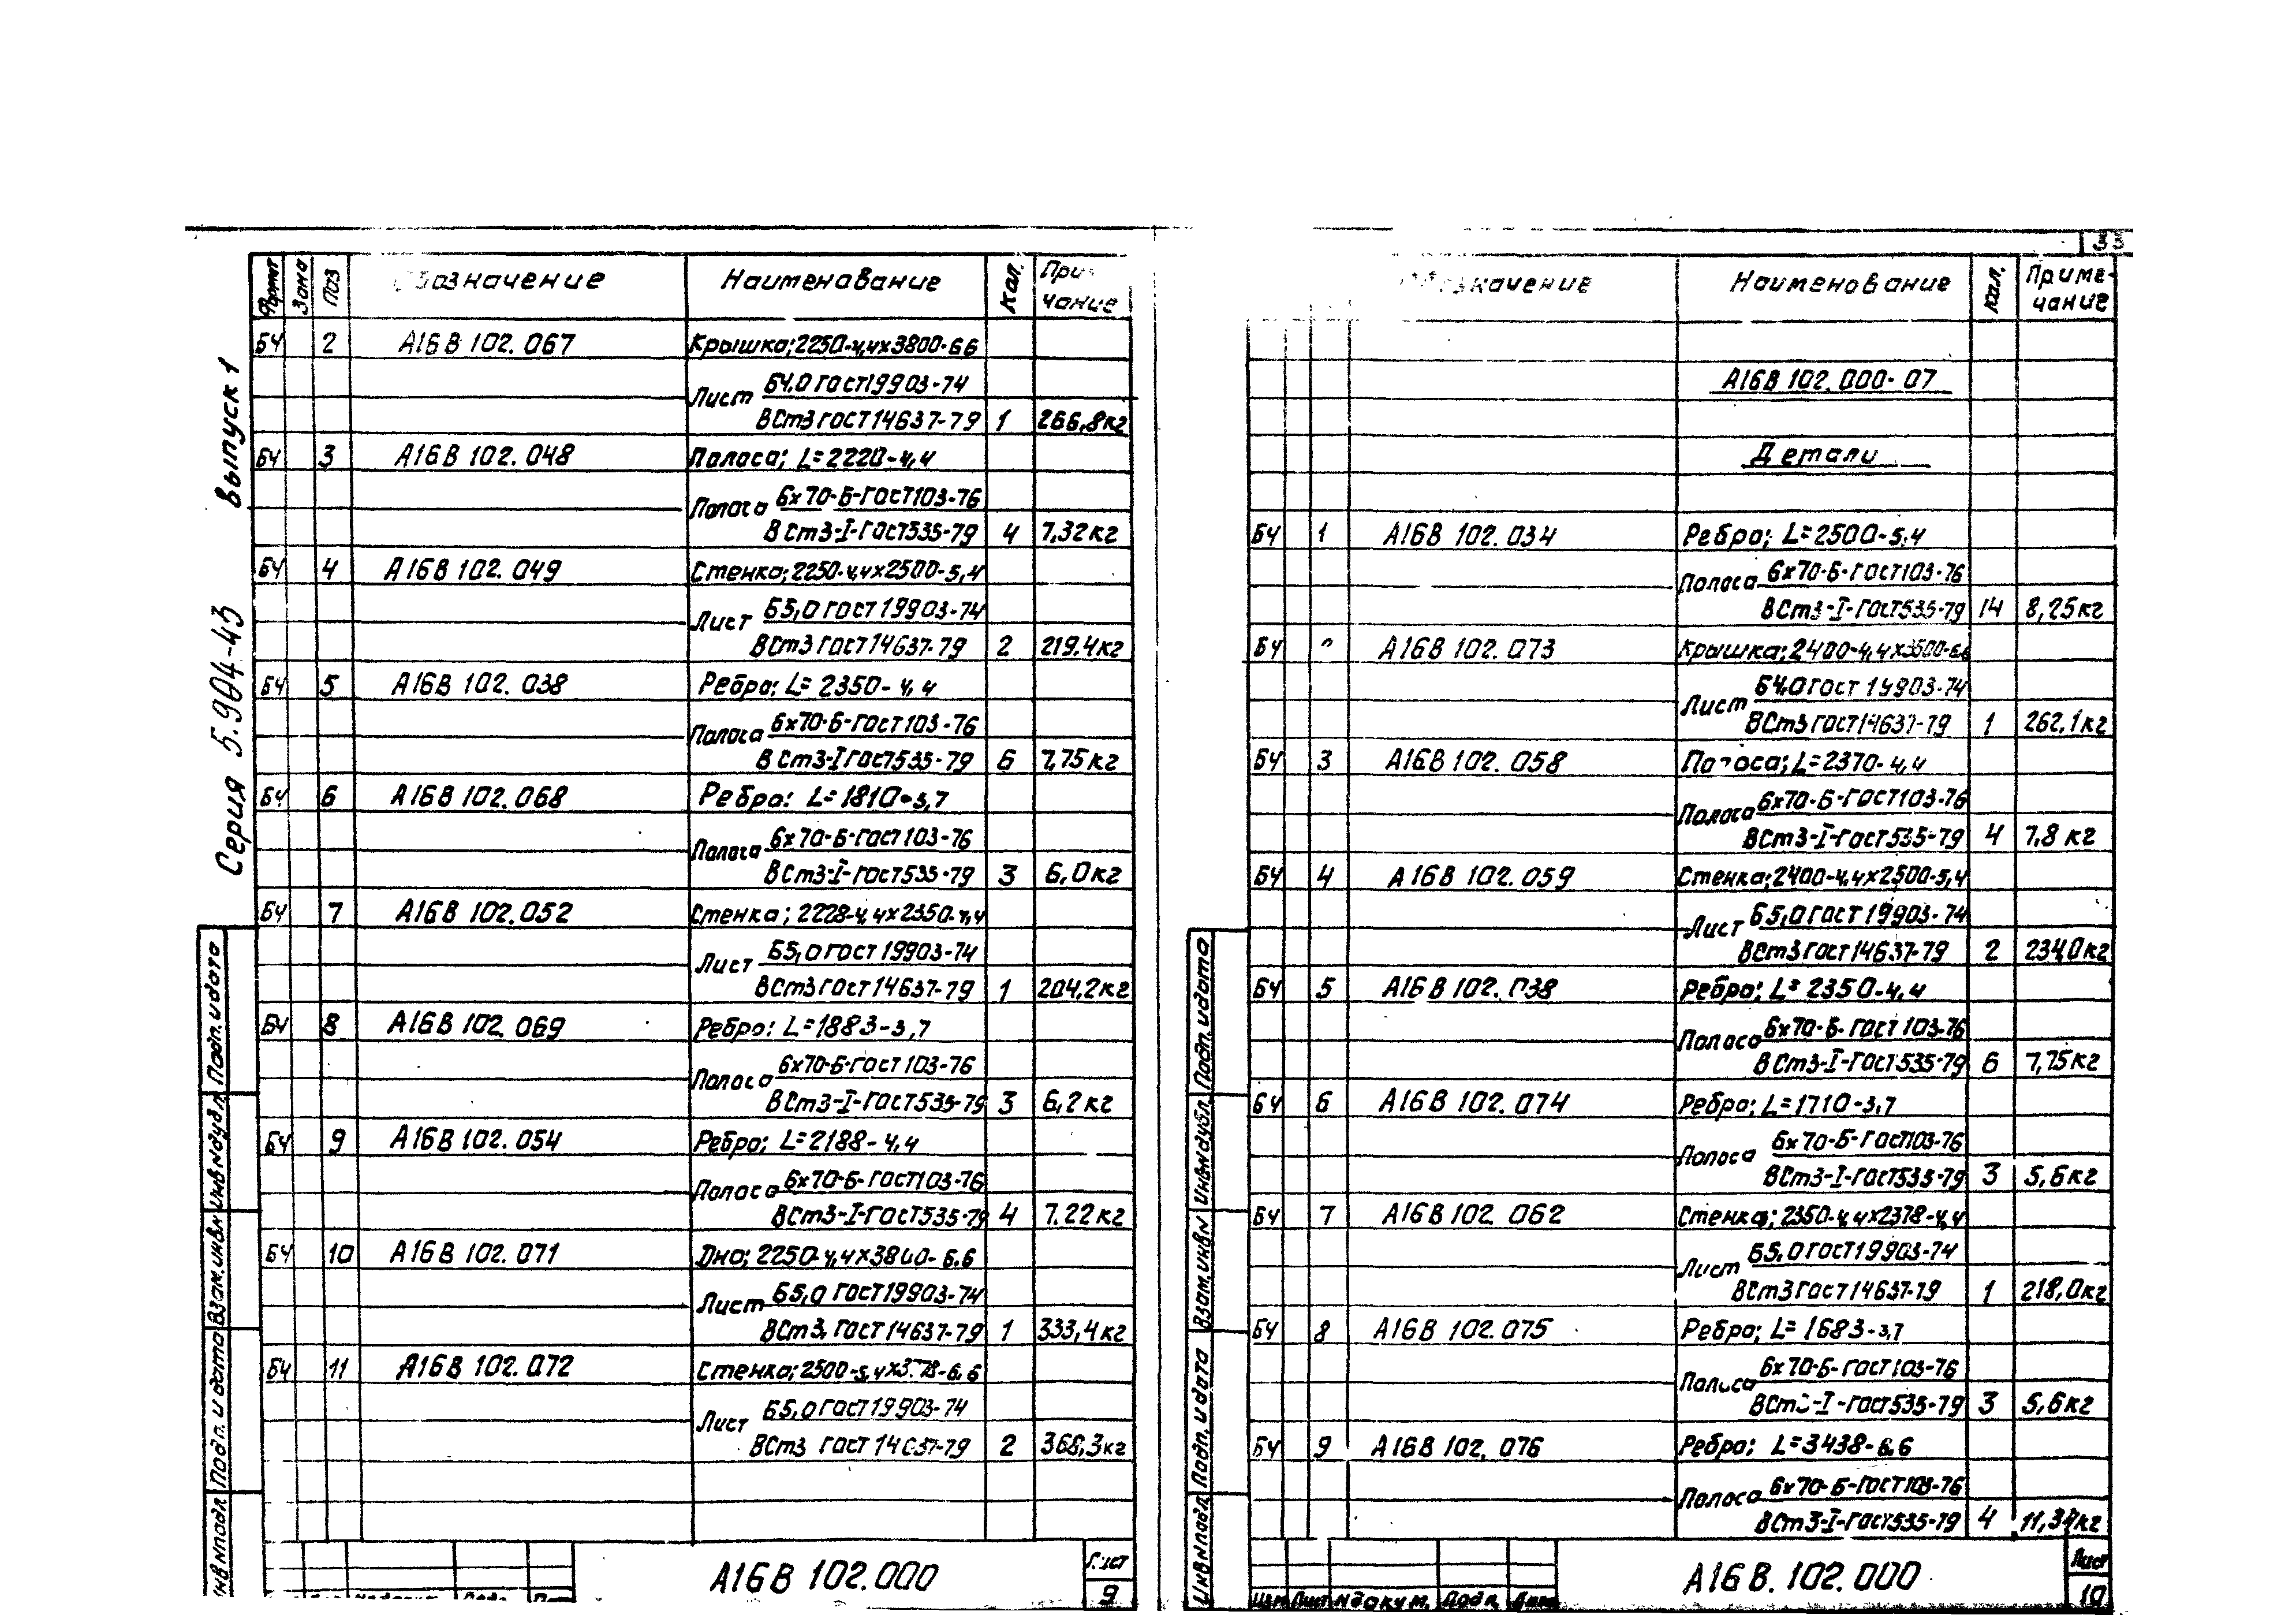 33
Серия 5.904-43 выпуск 1
Формат Зона Поз Обозначение Наименование Кол. Приме-
чание
БЧ 2 А16В 102.067 Крышка; 2250-4,4х3800-6,6
Лист Б4,0 ГОСТ 19903-74
ВСт3 ГОСТ 14637-79 1 266,8кг
БЧ 3 А16В 102.048 Полоса; L=2220-4,4
Полоса 6х70-Б-ГОСТ103-76
ВСт3-I-ГОСТ535-79 4 7,32кг
БЧ 4 А16В 102.049 Стенка; 2250-4,4х2500-5,4
Лист Б5,0 ГОСТ 19903-74
ВСт3 ГОСТ 14637-79 2 219.4кг
БЧ 5 А16В 102.038 Ребро; L=2350-4,4
Полоса 6х70-Б-ГОСТ103-76
ВСт3-I ГОСТ535-79 6 7,75кг
БЧ 6 А16В 102.068 Ребро; L=1810-3,7
Полоса 6х70-Б-ГОСТ103-76
ВСт3-I-ГОСТ535-79 3 6,0кг
БЧ 7 А16В 102.052 Стенка; 2228-4,4х2350-4,4
Лист Б5,0 ГОСТ 19903-74
ВСт3 ГОСТ 14637-79 1 204,2кг
БЧ 8 А16В 102.069 Ребро; L=1883-3,7
Полоса 6х70-Б-ГОСТ103-76
ВСт3-I-ГОСТ535-79 3 6,2кг
БЧ 9 А16В 102.054 Ребро; L=2188-4,4
Полоса 6х70-Б-ГОСТ103-76
ВСт3-I-ГОСТ535-79 4 7.22кг
БЧ 10 А16В 102.071 Дно; 2250-4,4х3800-6.6
Лист Б5,0 ГОСТ19903-74
ВСт3 ГОСТ 14637-79 1 333,4кг
БЧ 11 А16В 102.072
Лист Б5,0 ГОСТ19903-74
ВСт3 ГОСТ 14637-79 2 368,3кг
Подп. и дата
Инв N дубл.
Взам. инв N
Подп. и дата
Инв N подл.
А16В 102.000
Лист
9
Обозначение Наименование Кол. Приме-
чание
А16В 102.000-07
Детали
БЧ 1 А16В 102.034 Ребро; L=2500-5,4
Полоса 6х70-Б-ГОСТ103-76
ВСт3-I-ГОСТ535-79 14 8,25кг
БЧ А16В 102.073 Крышка; 2400-4,4х3600-6,6
Лист Б4,0 ГОСТ 19903-74
ВСт3 ГОСТ14637-79 1 262,1кг
БЧ 3 А16В 102.058 Полоса; L=2370-4,4
Полоса 6х70-Б-ГОСТ103-76
ВСт3-I-ГОСТ535-79 4 7,8 кг
БЧ 4 А16В 102.059 Стенка; 2400-4,4х2500-5,4
Лист Б5,0 ГОСТ 19903-74
ВСт3 ГОСТ 14637-79 2 234,0кг
БЧ 5 А16В 102.038 Ребро; L=2350-4,4
Полоса 6х70-Б-ГОСТ103-76
ВСт3-I-ГОСТ535-79 6 7,75кг
БЧ 6 А16В 102.074 Ребро; L=1710-3,7
Полоса 6х70-Б-ГОСТ103-76
ВСт3-I-ГОСТ535-79 3 5,6кг
БЧ 7 А16В 102.062 Стенка; 2350-4,4х2378-4,4
Лист Б5,0 ГОСТ19903-74
ВСт3 ГОСТ14637-79 1 218,0кг
БЧ 8 А16В 102.075 Ребро; L=1683-3,7
Полоса 6х70-Б-ГОСТ103-76
ВСт3-I-ГОСТ535-79 3 5,6кг
БЧ 9 А16В 102.076 Ребро; L=3438-6,6
Полоса 6х70-Б-ГОСТ103-76
ВСт3-I-ГОСТ535-79 4
Подп. и дата
Инв N дубл.
Взам. инв N
Подп. и дата
Инв N подл.
Изм Лист N докум. Подп. Дата
А16В.102.000
Лист
10